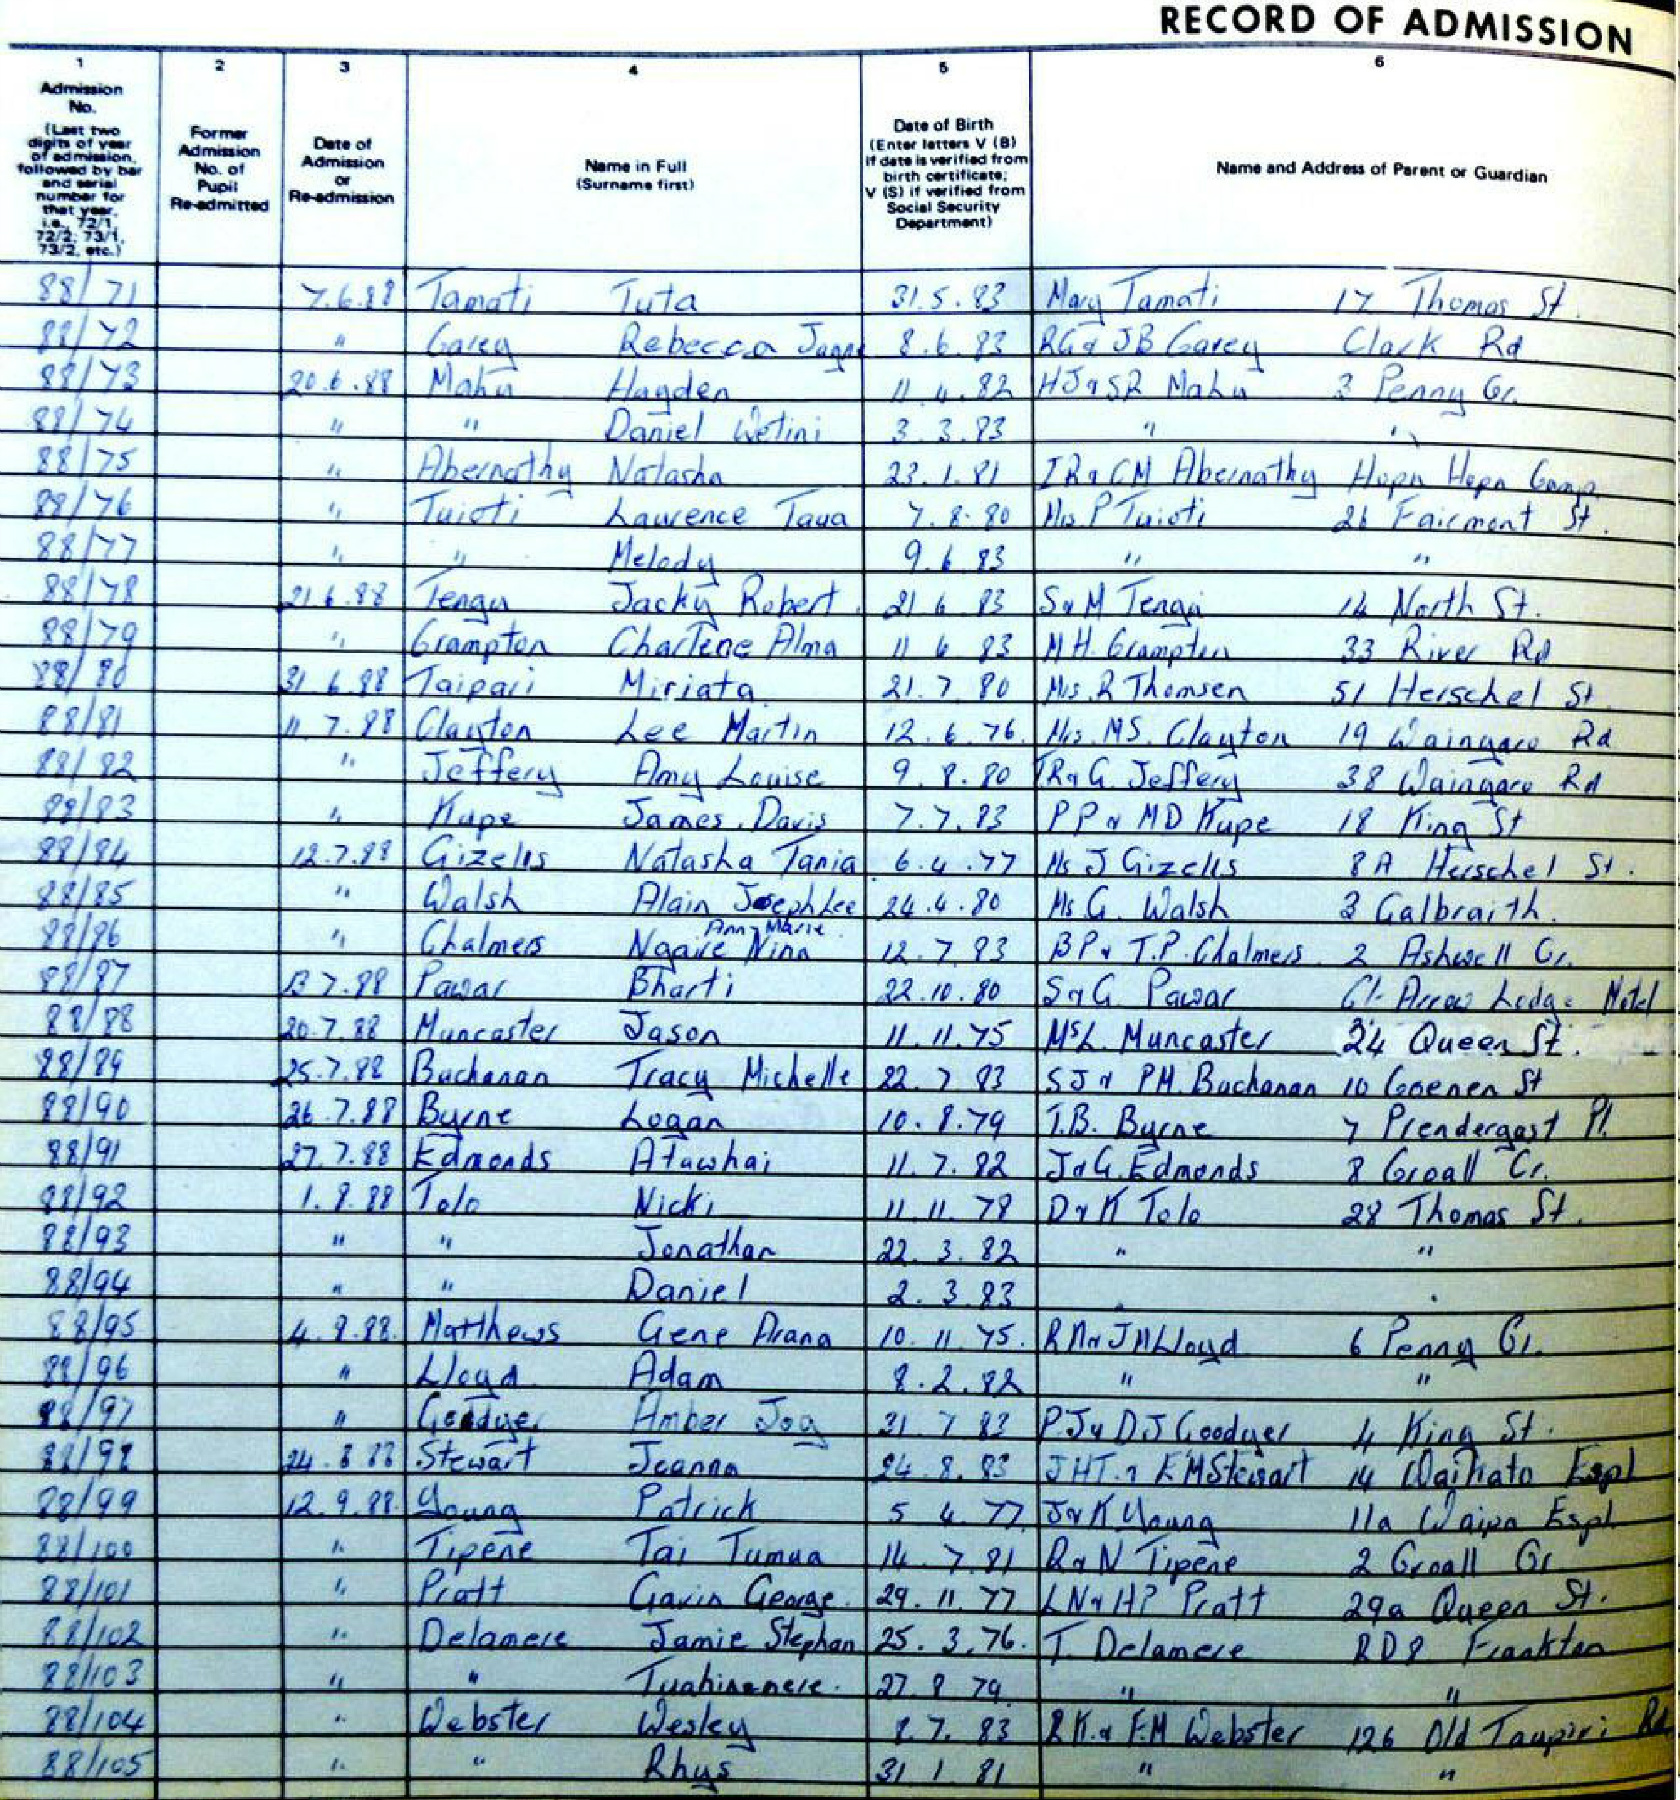 RECORD OF ADMISSION
1 2 3 4 5 6
Admission No. (Last two digits of year of admission, followed by bar and serial number for that year, i.e., 72/1, 72/2; 73/1, 73/2, etc.)
Former Admission No. of Pupil Re-admitted
Date of Admission or Re-admission
Name in Full (Surname first)
Date of Birth (Enter letters V (B) if date is verified from birth certificate; V (S) if verified from Social Security Department)
Name and Address of Parent or Guardian
88/71 7.6.88 Tamati Tuta 31.5.83 Mary Tamati 17 Thomas St.
88/72 " Carey Rebecca Jayne 8.6.83 RG & JB Carey Clark Rd
88/73 20.6.88 Mahu Hayden 11.4.82 HJ & SR Mahu 3 Penny Cr.
88/74 " " Daniel Wetini 3.3.83 " "
88/75 " Abernathy Natasha 23.1.81 IR & CM Abernathy Hopu Hopu Camp
88/76 " Tuioti Lawrence Taua 7.8.80 Mrs P Tuioti 26 Fairmont St.
88/77 " " Melody 9.6.83 " "
88/78 21.6.88 Tengu Jacky Robert 21.6.83 S & M Tengu 14 North St.
88/79 " Crampton Charlene Alma 11.6.83 M H. Crampton 33 River Rd
88/80 31.6.88 Taipari Miriata 21.7.80 Mrs. R Thomsen 51 Herschel St
88/81 11.7.88 Clayton Lee Martin 12.6.76. Mrs. MS. Clayton 19 Waingaro Rd
88/82 " Jeffery Amy Louise 9.8.80 R & G. Jeffery 38 Waingaro Rd
88/83 " Kupe James Davis 7.7.83 P P & MD Kupe 18 King St
88/84 12.7.88 Gizells Natasha Tania 6.4.77 Ms J Gizells 8A Herschel St.
88/85 " Walsh Alain Joseph Lee 24.4.80 Ms G. Walsh 3 Galbraith.
Ann Marie
88/86 " Chalmers Ngaire Nina 12.7.83 BP & T.P. Chalmers. 2 Ashwell Cr.
88/87 13.7.88 Pawar Bharti 22.10.80 S & G. Pawar C/- Arrow Lodge Motel
88/88 20.7.88 Muncaster Jason 11.11.75 Ms L. Muncaster 24 Queen St.
88/89 25.7.88 Buchanan Tracy Michelle 22.7.83 SJ & PM. Buchanan 10 Coenen St
88/90 26.7.88 Byrne Logan 10.8.79 T.B. Byrne 7 Prendergast Pl.
88/91 27.7.88 Edmonds Atawhai 11.7.82 J & G. Edmonds 8 Croall Cr.
88/92 1.8.88 Tolo Nicki 11.11.78 D & K Tolo 28 Thomas St.
88/93 " " Jonathan 22.3.82 " "
88/94 " " Daniel 2.3.83
88/95 4.8.88. Matthews Gene Arana 10.11.75. JM Lloyd 6 Penny Cr.
88/96 " Lloyd Adam 8.2.82 " "
88/97 " Goodyer Amber Joy 31.7.83 P J & D J Goodyer 4 King St.
88/98 24.8.88 Stewart Joanna 24.8.83 JHT. & EM Stewart 14 Waikato Espl
88/99 12.9.88. Young Patrick 5.4.77. J & K Young 11a Waipa Espl
88/100 " Tipene Tai Tumua 14.7.81 R & N Tipene 2 Croall Cr
88/101 " Pratt Gavin George. 29.11.77 LN & HP Pratt 29a Queen St.
88/102 " Delamere Jamie Stephan 25.3.76. T. Delamere RD8 Frankton
88/103 " " 27.8.79. " "
88/104 " Webster Wesley 8.7.83 R K. & F.M Webster 126 Old Taupiri Rd
88/105 " " Rhys 31.1.81 " "